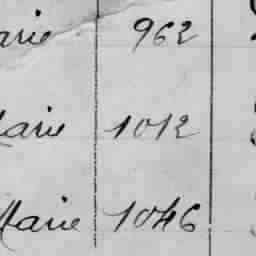 arie 962
arie 1012
Marie 1046